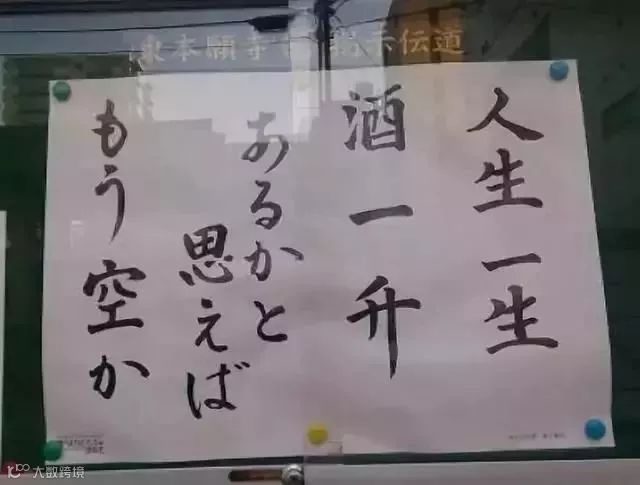 東本願寺 掲示伝道
人生一生
酒一升
あるかと
思えば
もう空か
大数跨境